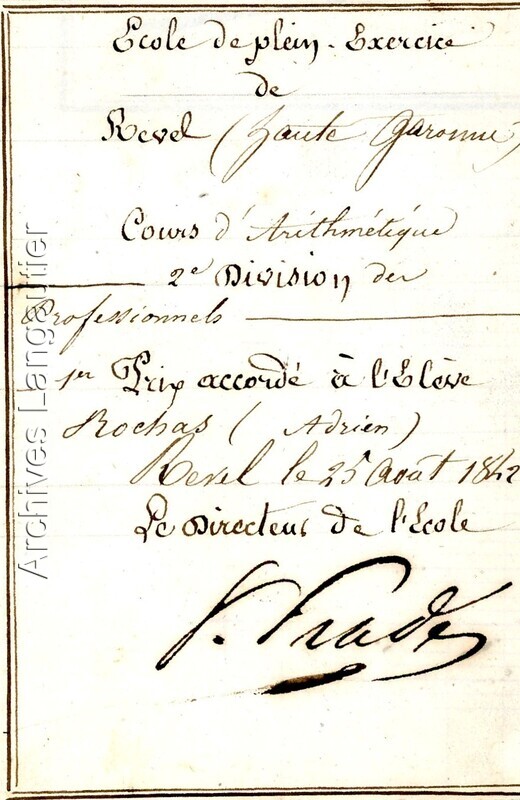 Ecole de plein-Exercice
de
Revel (haute Garonne)
Cours d'Arithmétique
2e Division des
Professionnels
1er Prix accordé à l'Elève
Rochas (Adrien)
Revel le 25 Août 1842
Le Directeur de l'Ecole
Archives Langautier